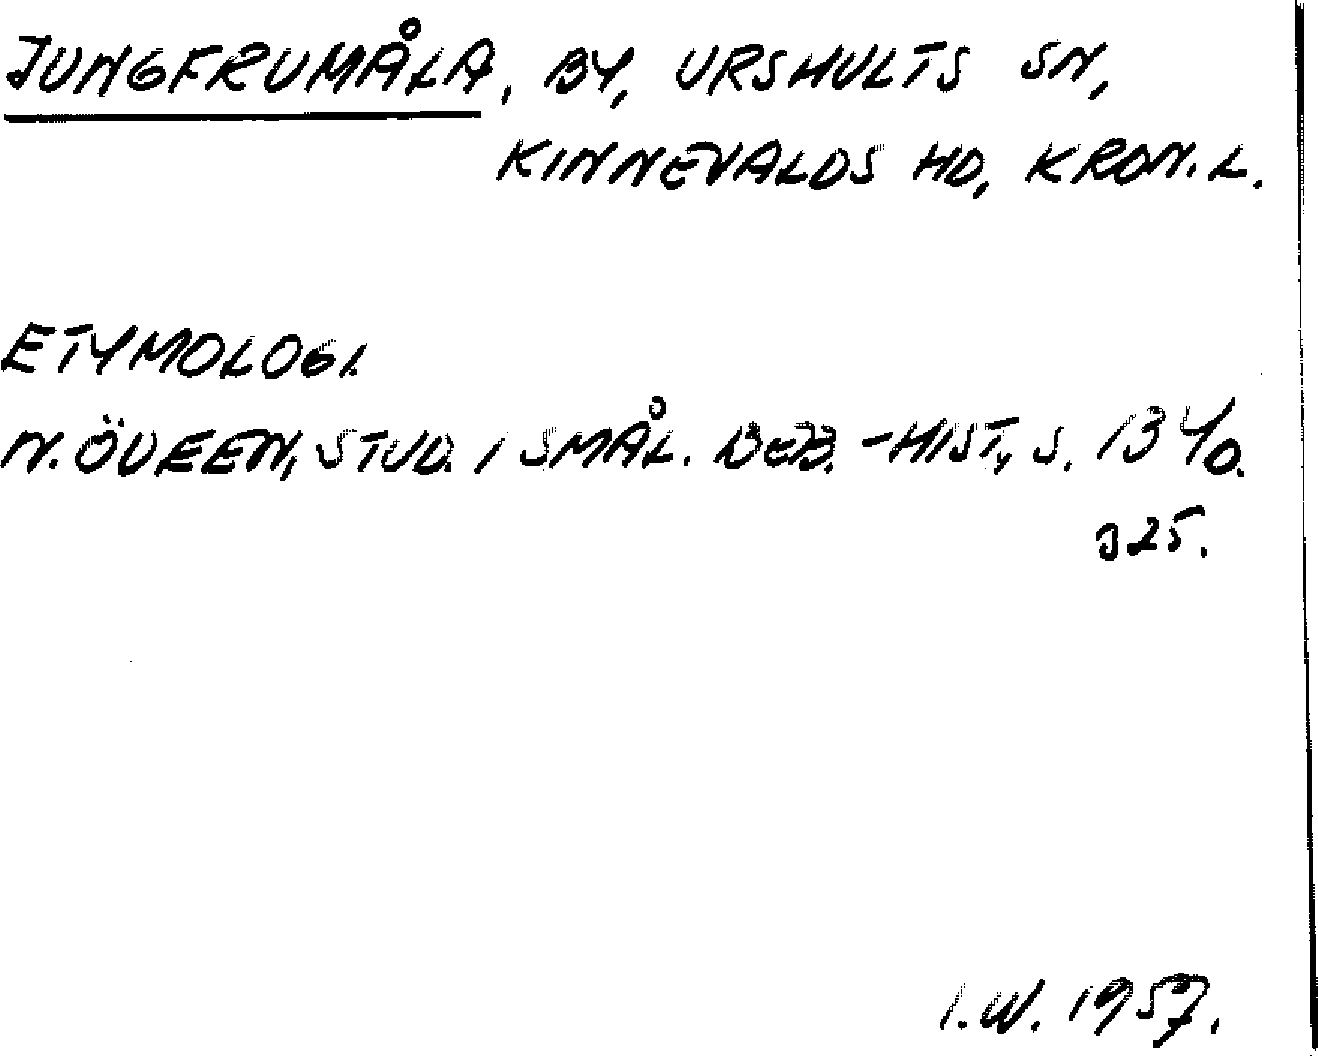 JUNGFRUMÅLA, BY, URSHULTS SN,
KINNEVALDS HD, KRON. L.
ETYMOLOGI.
N. ÖDEEN, STUD. I SMÅL. BEB. -HIST., S.
325.
I.W. 1957.